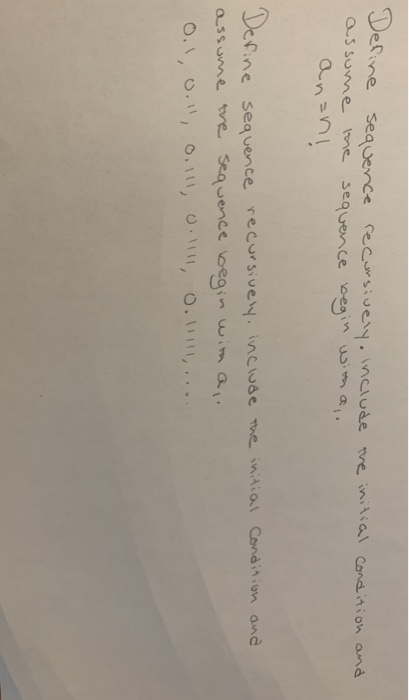 Define sequence recursively. include the initial condition and
assume the sequence begin with a₁.
aₙ = n!
Define sequence recursively. include the initial condition and
assume the sequence begin with a₁.
0.1, 0.11, 0.111, 0.1111, 0.11111, ....